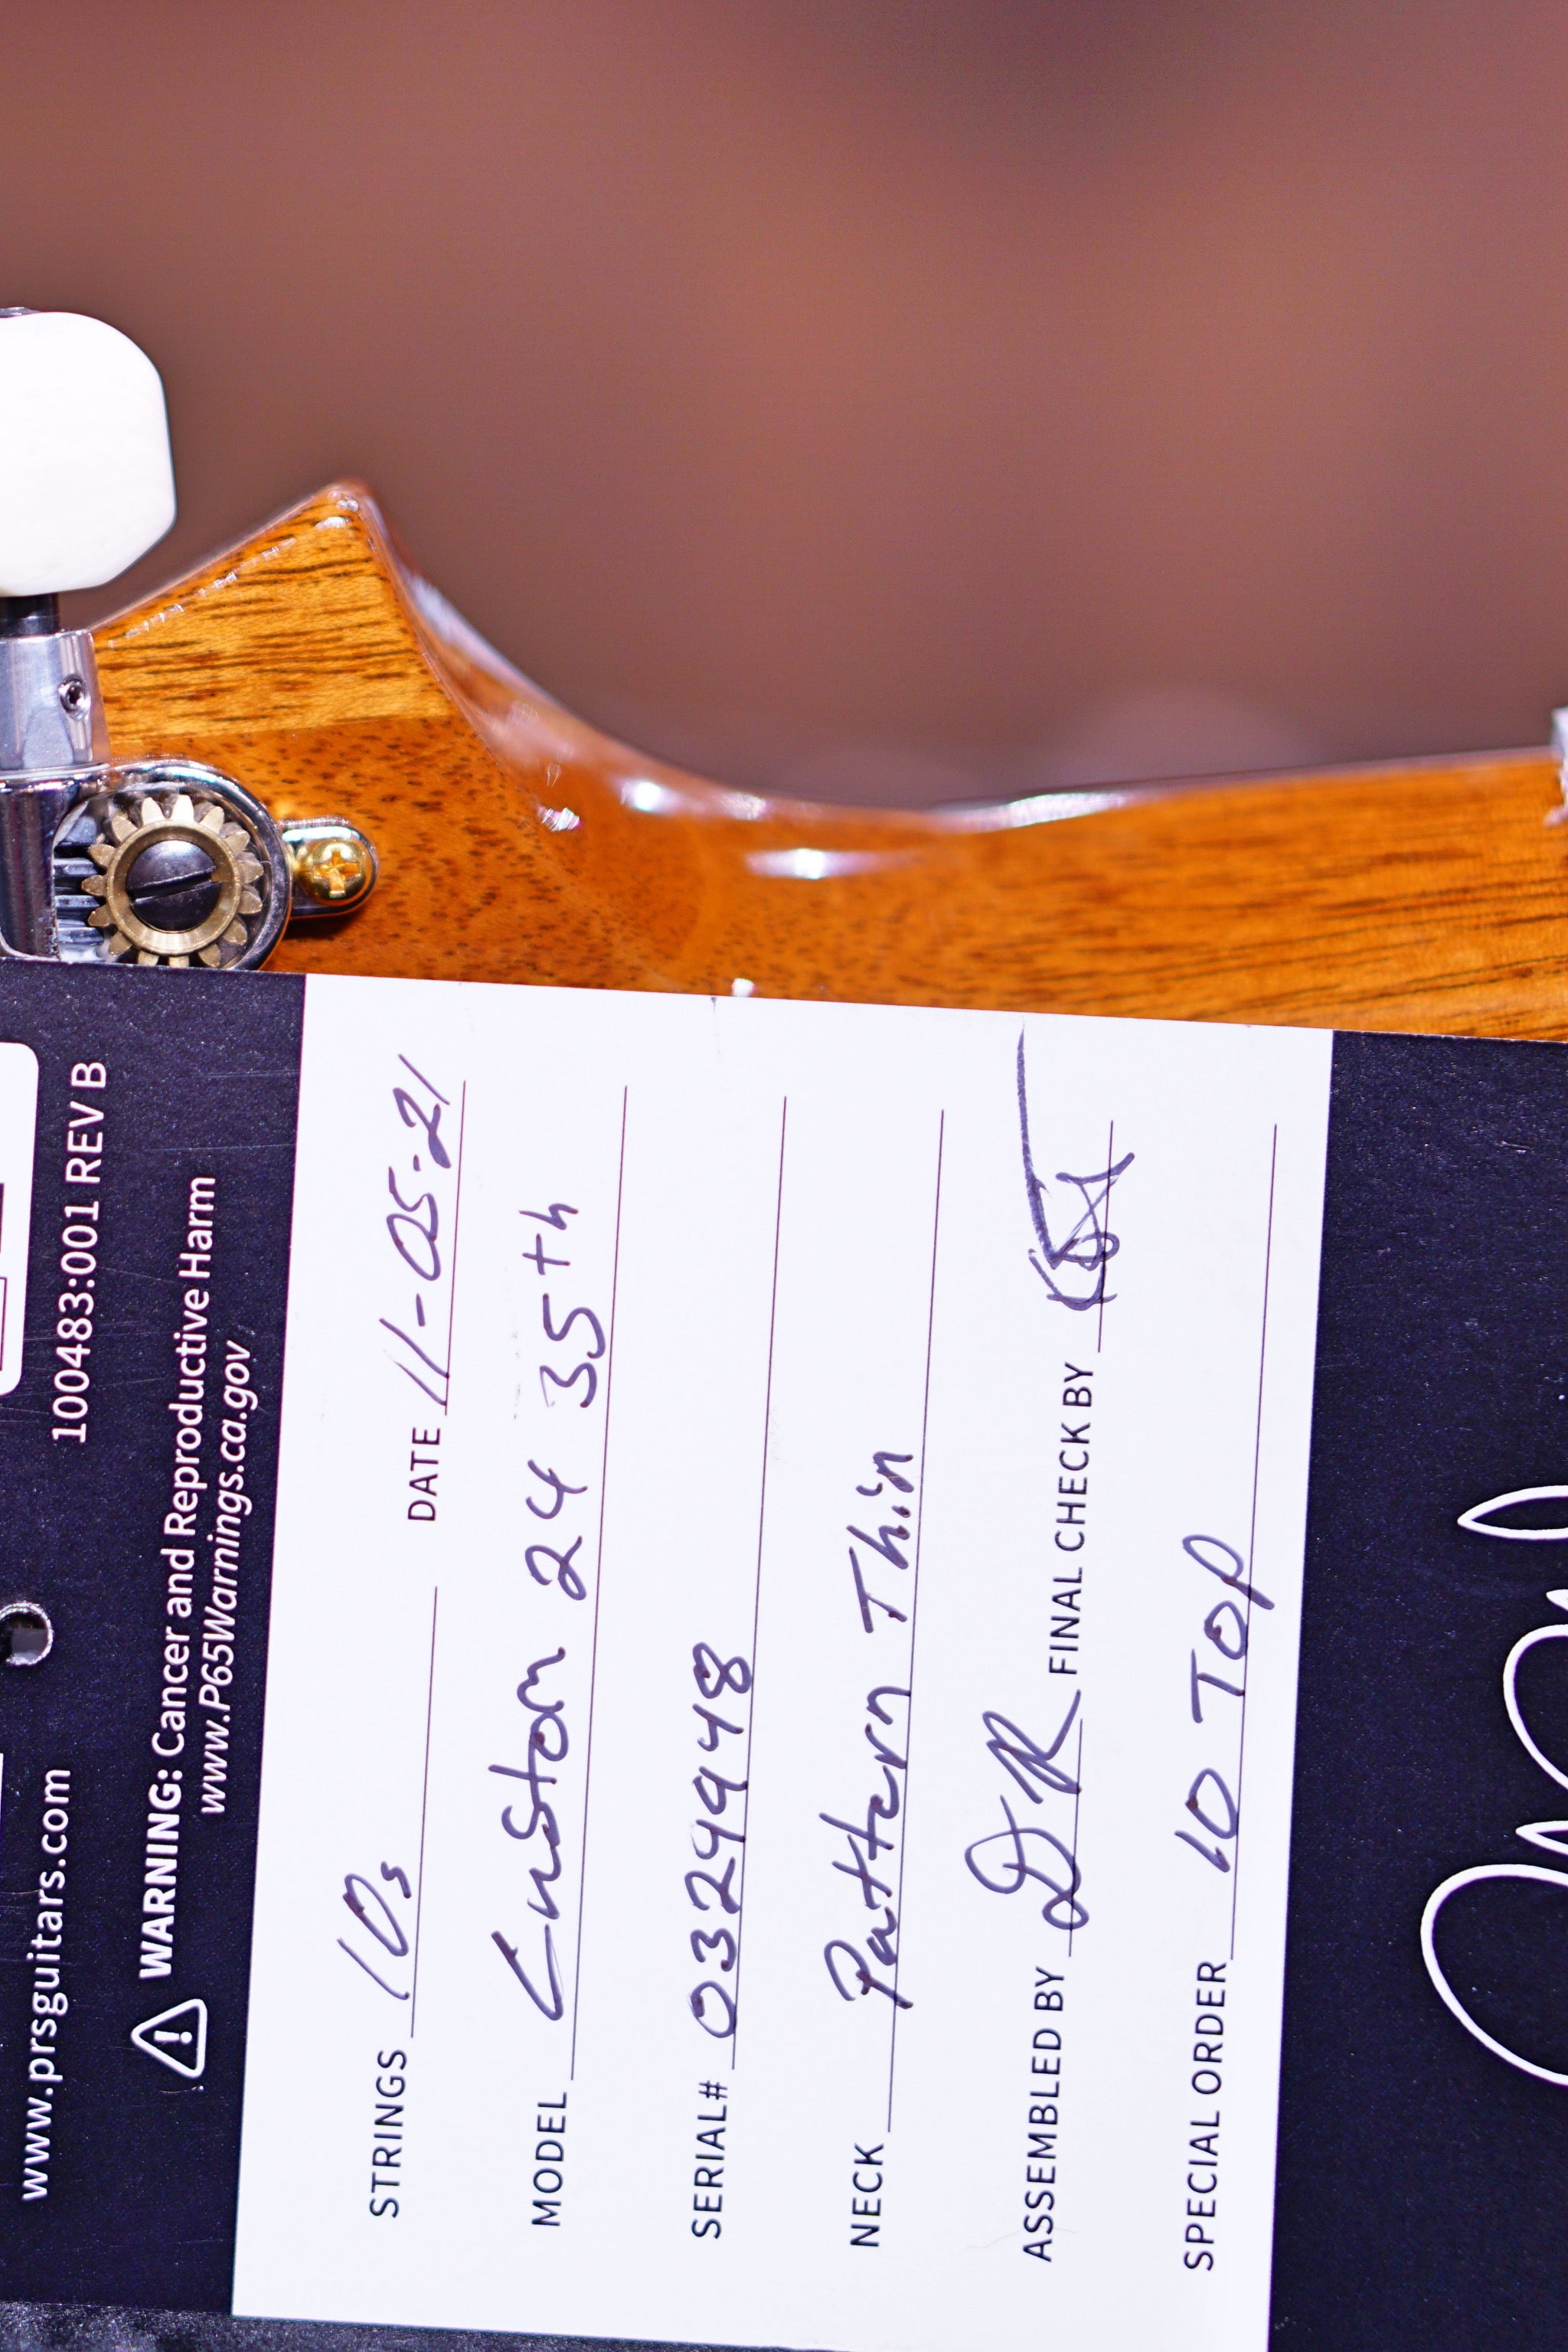 www.prsguitars.com
100483:001 REV B
WARNING: Cancer and Reproductive Harm
www.P65Warnings.ca.gov
STRINGS 10s DATE 11-05-21
MODEL Custom 24 35th
SERIAL# 0329948
NECK Pattern Thin
ASSEMBLED BY DR FINAL CHECK BY
SPECIAL ORDER 10 TOP